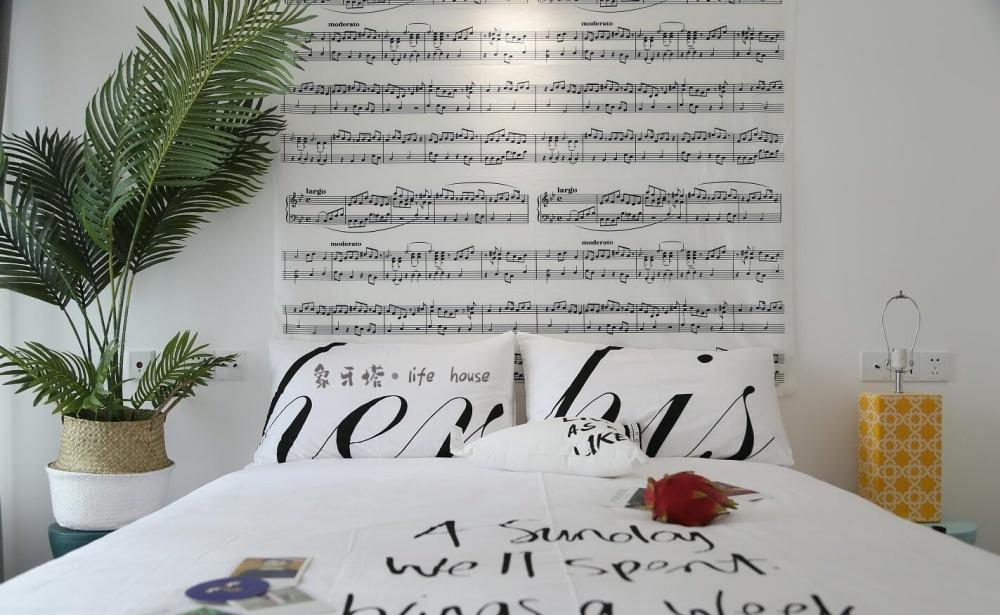 moderato
moderato
largo
largo
moderato
moderato
象牙塔·life house
her
his
AS
LIKE
A Sunday
well spent
brings a week